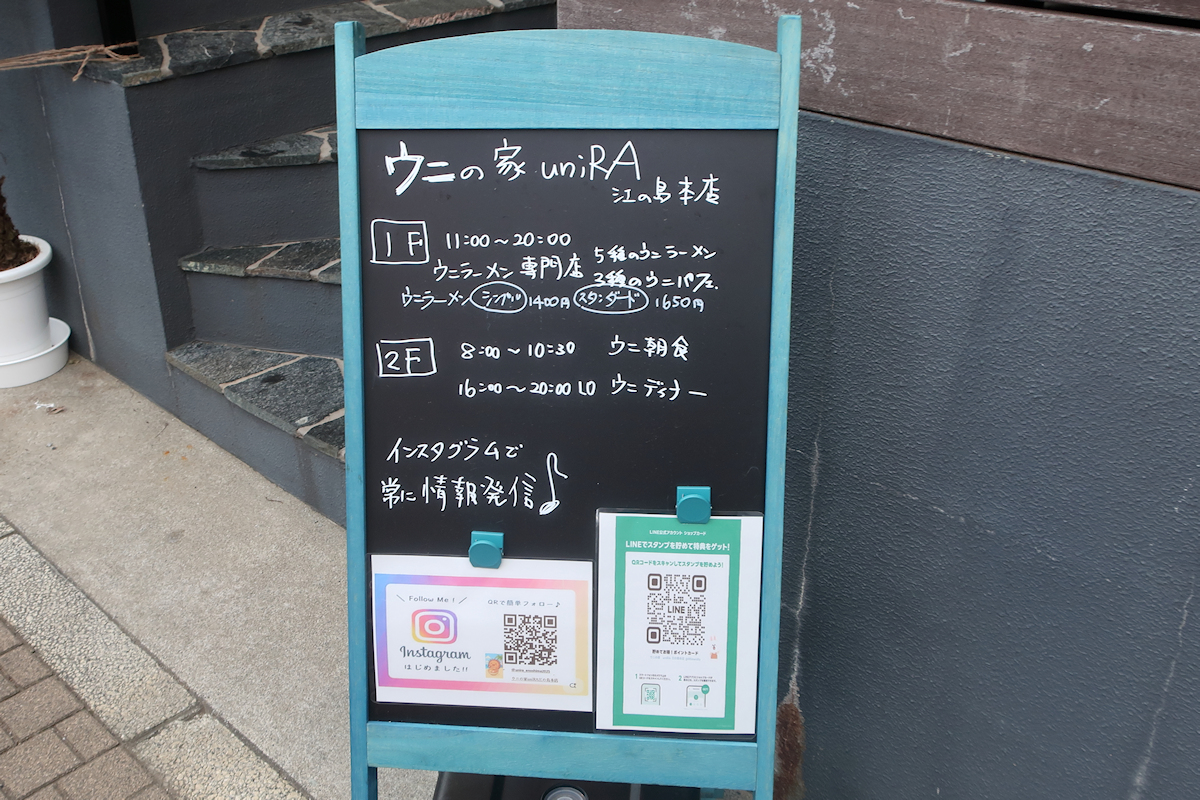 ウニの家 uniRA
江の島本店
1F 11:00〜20:00
ウニラーメン専門店
5種のウニラーメン
3種のウニパフェ
ウニラーメン シンプル 1400円 スタンダード 1650円
2F 8:00〜10:30 ウニ朝食
16:00〜20:00 LO ウニディナー
インスタグラムで
常に情報発信♪
\ Follow Me! /
QRで簡単フォロー♪
Instagram
はじめました!!
LINE公式アカウント ショップカード
LINEでスタンプを貯めて特典をゲット!
QRコードをスキャンしてスタンプを貯めよう!
LINE
貯めてお得!ポイントカード
1
2